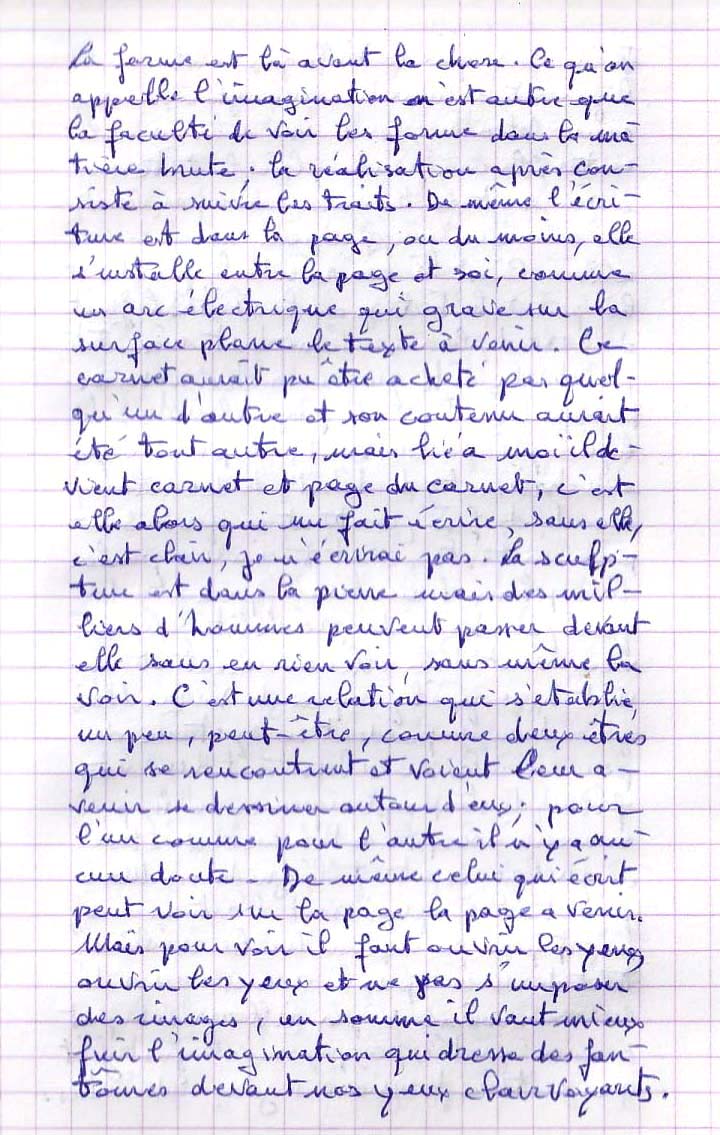 La forme est là avant la chose. Ce qu'on
appelle l'imagination n'est autre que
la faculté de voir les forme dans la ma
tière brute ; la réalisation après con-
siste à suivre les traits. De même l'écri-
ture est dans la page, ou du moins, elle
s'installe entre la page et soi, comme
un arc électrique qui grave sur la
surface plane le texte à venir. Ce
carnet aurait pu être acheté par quel-
qu'un d'autre et son contenu aurait
été tout autre, mais lié à moi il de-
vient carnet et page du carnet, c'est
elle alors qui me fait écrire, sans elle,
c'est clair, je n'écrirai pas. La sculp-
ture est dans la pierre mais des mil-
liers d'hommes peuvent passer devant
elle sans en rien voir, sans même la
voir. C'est une relation qui s'etablie,
un peu, peut-être, comme deux êtres
qui se rencontrent et voient leur a-
venir se dessiner autour d'eux ; pour
l'un comme pour l'autre il n'y a au-
cun doute. De même celui qui écrit
peut voir sur la page la page a venir.
Mais pour voir il faut ouvrir les yeux,
ouvrir les yeux et ne pas s'imposer
des images, en somme il vaut mieux
fuir l'imagination qui dresse des fan-
tômes devant nos yeux clairvoyants.